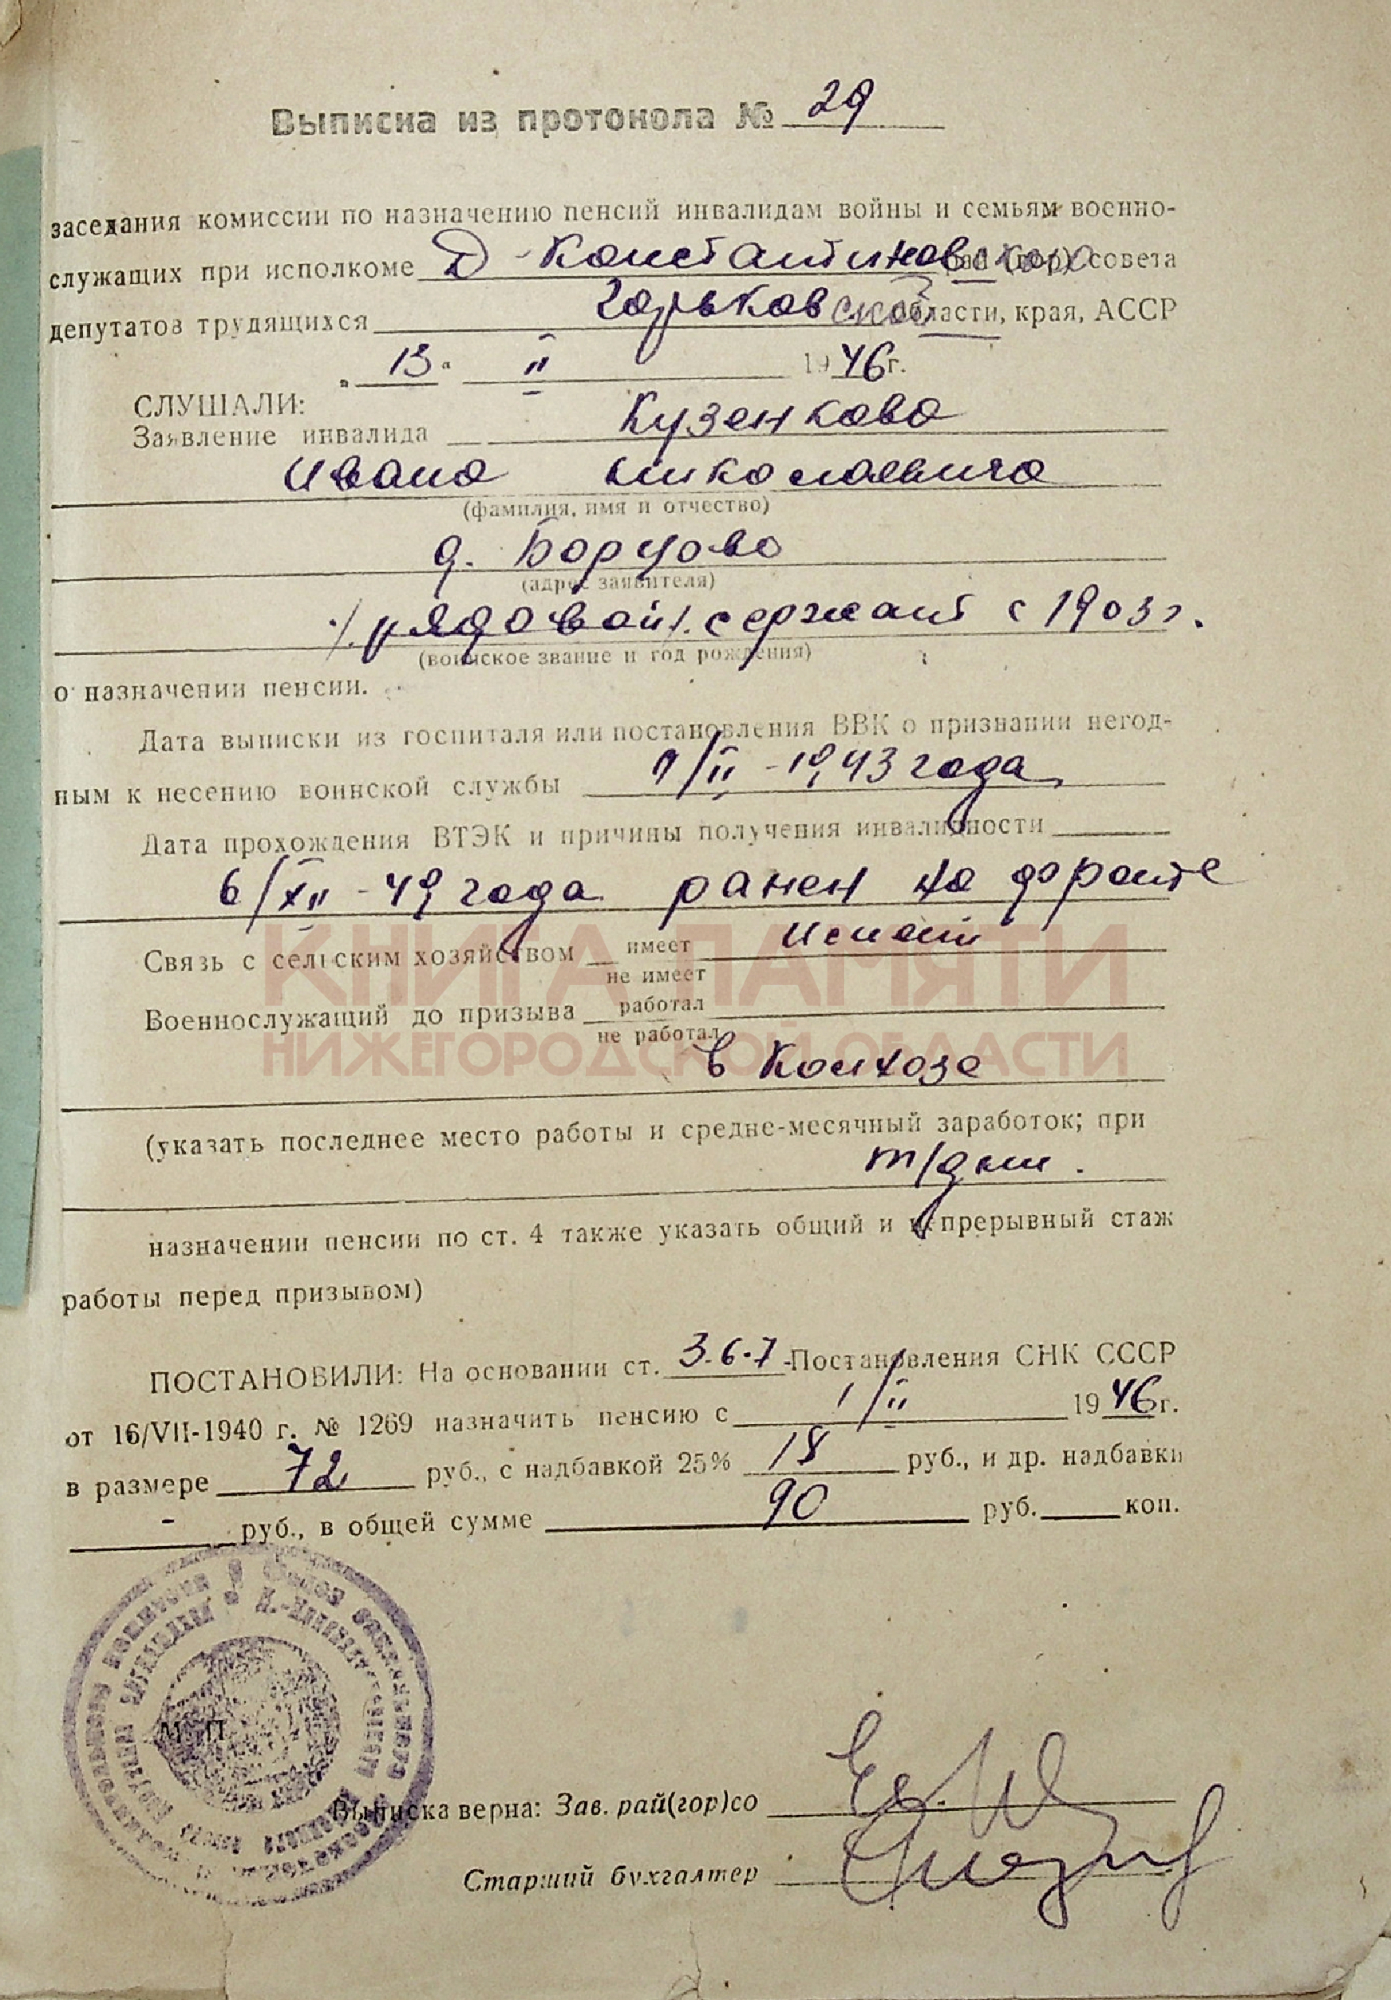 Выписка из протокола № 29
заседания комиссии по назначению пенсий инвалидам войны и семьям военно-
служащих при исполкоме Д-Константиновского рай (гор) совета
депутатов трудящихся Горьковской области, края, АССР
„ 13 “ II 1946 г.
СЛУШАЛИ:
Заявление инвалида Кузенкова
Ивана Николаевича
(фамилия, имя и отчество)
д. Борцово
(адрес заявителя)
/рядовой/. сержант с 1903 г.
(воинское звание и год рождения)
о назначении пенсии.
Дата выписки из госпиталя или постановления ВВК о признании негод-
ным к несению воинской службы /II - 1943 года
Дата прохождения ВТЭК и причины получения инвалидности
6/XII - 49 года ранен на фронте
Связь с сельским хозяйством имеет
не имеет
Военнослужащий до призыва работал
не работал
в колхозе
(указать последнее место работы и средне-месячный заработок; при
т/дни.
назначении пенсии по ст. 4 также указать общий и непрерывный стаж
работы перед призывом)
ПОСТАНОВИЛИ: На основании ст. 3-6-7 Постановления СНК СССР
от 16/VII-1940 г. № 1269 назначить пенсию с 1/II 1946 г.
в размере 72 руб., с надбавкой 25% 18 руб., и др. надбавки
- руб., в общей сумме 90 руб. коп.
М. П.
Выписка верна: Зав. рай(гор)со
Старший бухгалтер
КНИГА ПАМЯТИ
НИЖЕГОРОДСКОЙ ОБЛАСТИ